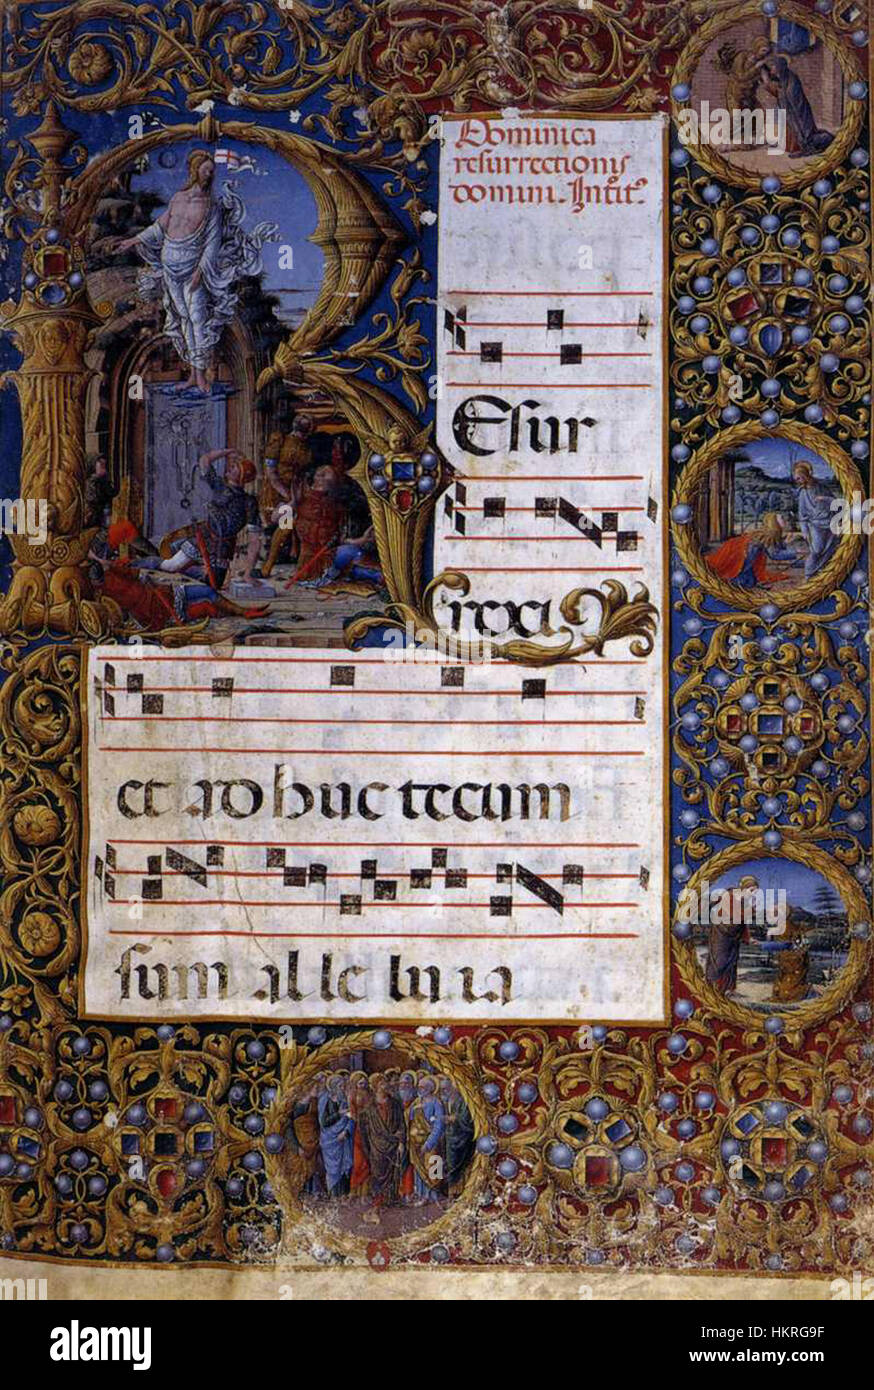 Dominica
resurrectionis
domini. Introit.
Resur
rexi
et ad huc tecum
sum al le lu ia
alamy
Image ID: HKRG9F
www.alamy.com